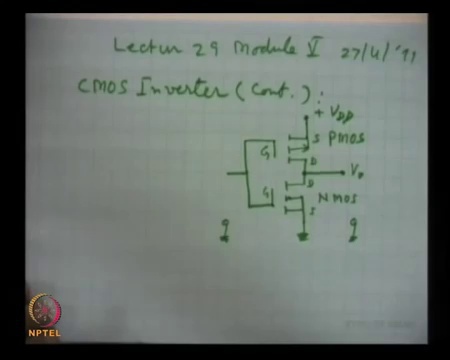 Lectur 29 Module V 27/4/'11
CMOS Inverter (Cont.) :
+ VDD
S PMOS
G
D
Vo
D
G
NMOS
S
NPTEL